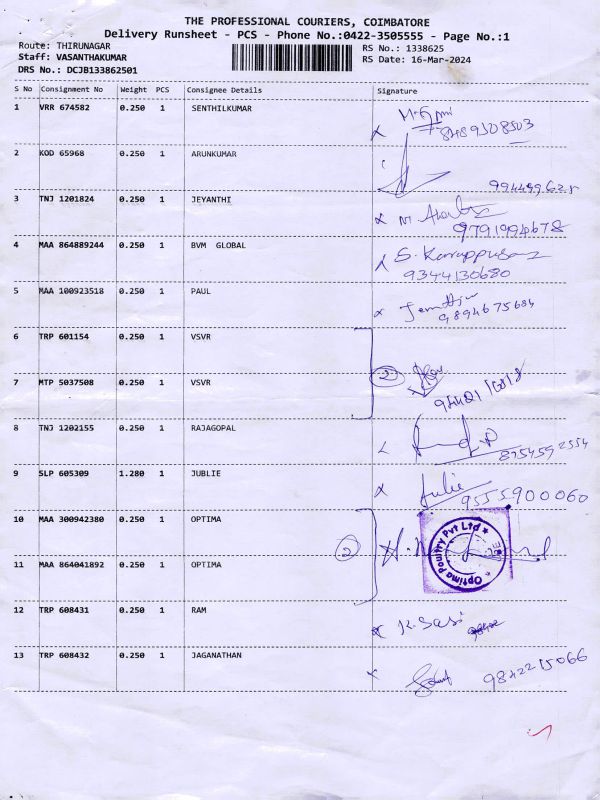 THE PROFESSIONAL COURIERS, COIMBATORE
Delivery Runsheet - PCS - Phone No.:0422-3505555 - Page No.:1
Route: THIRUNAGAR RS No.: 1338625
Staff: VASANTHAKUMAR RS Date: 16-Mar-2024
DRS No.: DCJB133862501
S No Consignment No Weight PCS Consignee Details Signature
1 VRR 674582 0.250 1 SENTHILKUMAR
8489508503
2 KOD 65968 0.250 1 ARUNKUMAR
3 TNJ 1201824 0.250 1 JEYANTHI
9791994678
4 MAA 864889244 0.250 1 BVM GLOBAL
9344130680
5 MAA 100923518 0.250 1 PAUL
9894675684
6 TRP 601154 0.250 1 VSVR
2
7 MTP 5037508 0.250 1 VSVR
8 TNJ 1202155 0.250 1 RAJAGOPAL
8754592554
9 SLP 605309 1.280 1 JUBLIE
Julie
9555900060
10 MAA 300942380 0.250 1 OPTIMA
2
Optima Poultry Pvt Ltd
CBE
11 MAA 864041892 0.250 1 OPTIMA
12 TRP 608431 0.250 1 RAM
K. Sasi
13 TRP 608432 0.250 1 JAGANATHAN
9842215066